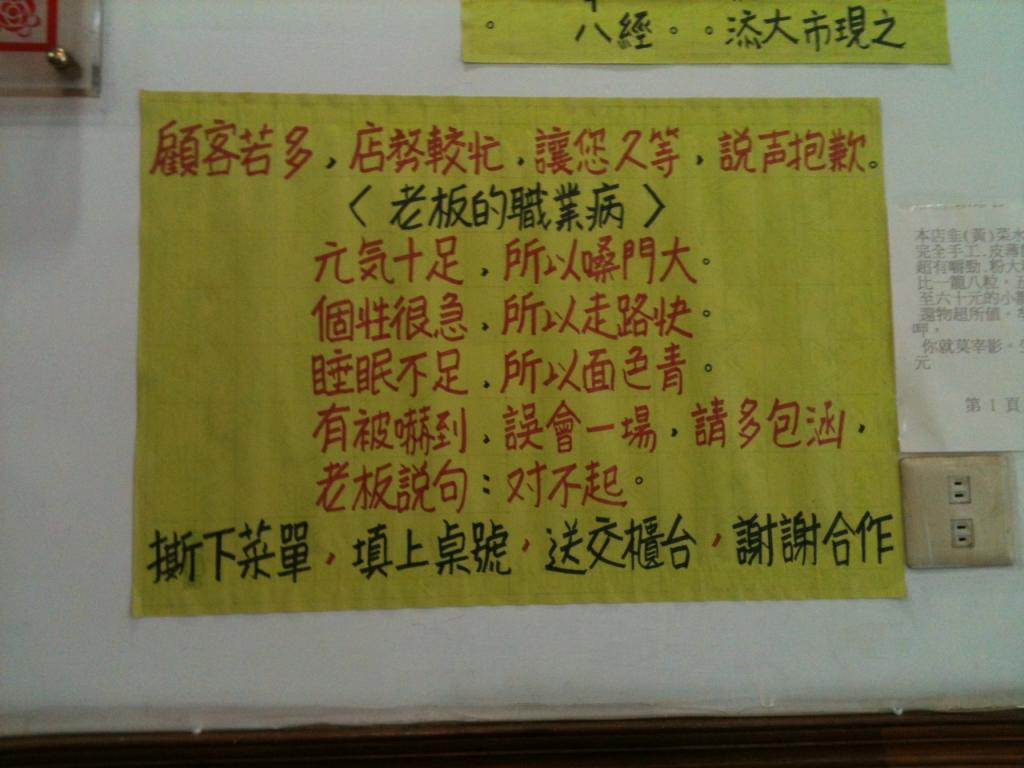 八經。。添大市現之
顧客若多,店務較忙,讓您久等,説声抱歉。
〈老板的職業病〉
元気十足,所以嗓門大。
個性很急,所以走路快。
睡眠不足,所以面色青。
有被嚇到,誤會一場,請多包涵,
老板説句:对不起。
撕下菜單,填上桌號,送交櫃台,謝謝合作
本店韭(黃)菜水
完全手工.皮薄
超有嚼勁.粉大
比一籠八粒,五
至六十元的小
還物超所值。
呷,
你就莫宰影。
元
第 1 頁